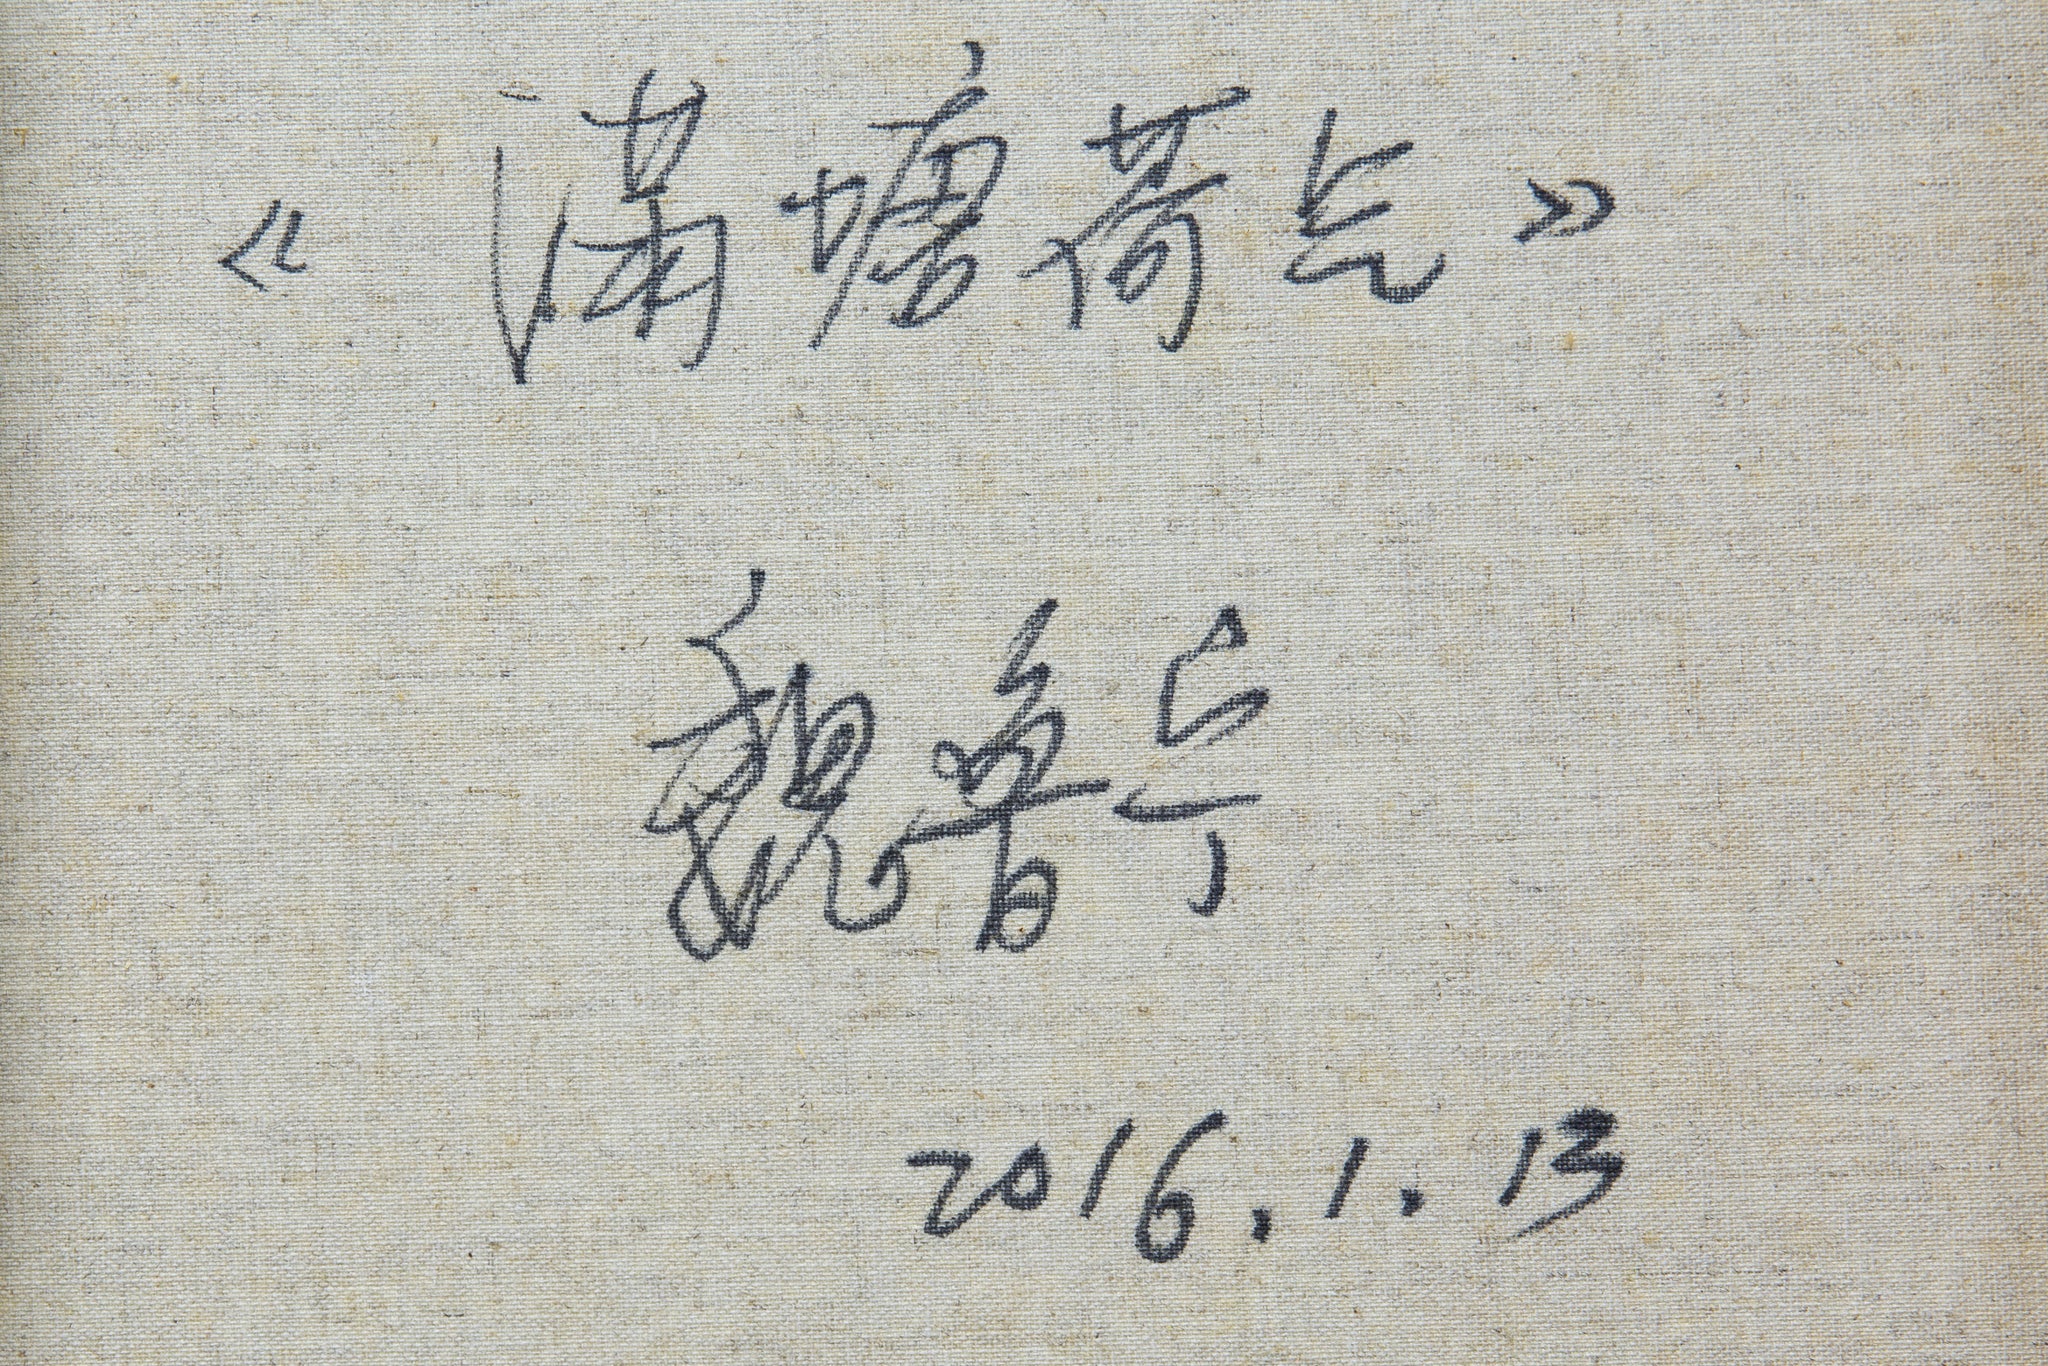 《满塘荷气》
魏鲁兵
2016.1.13